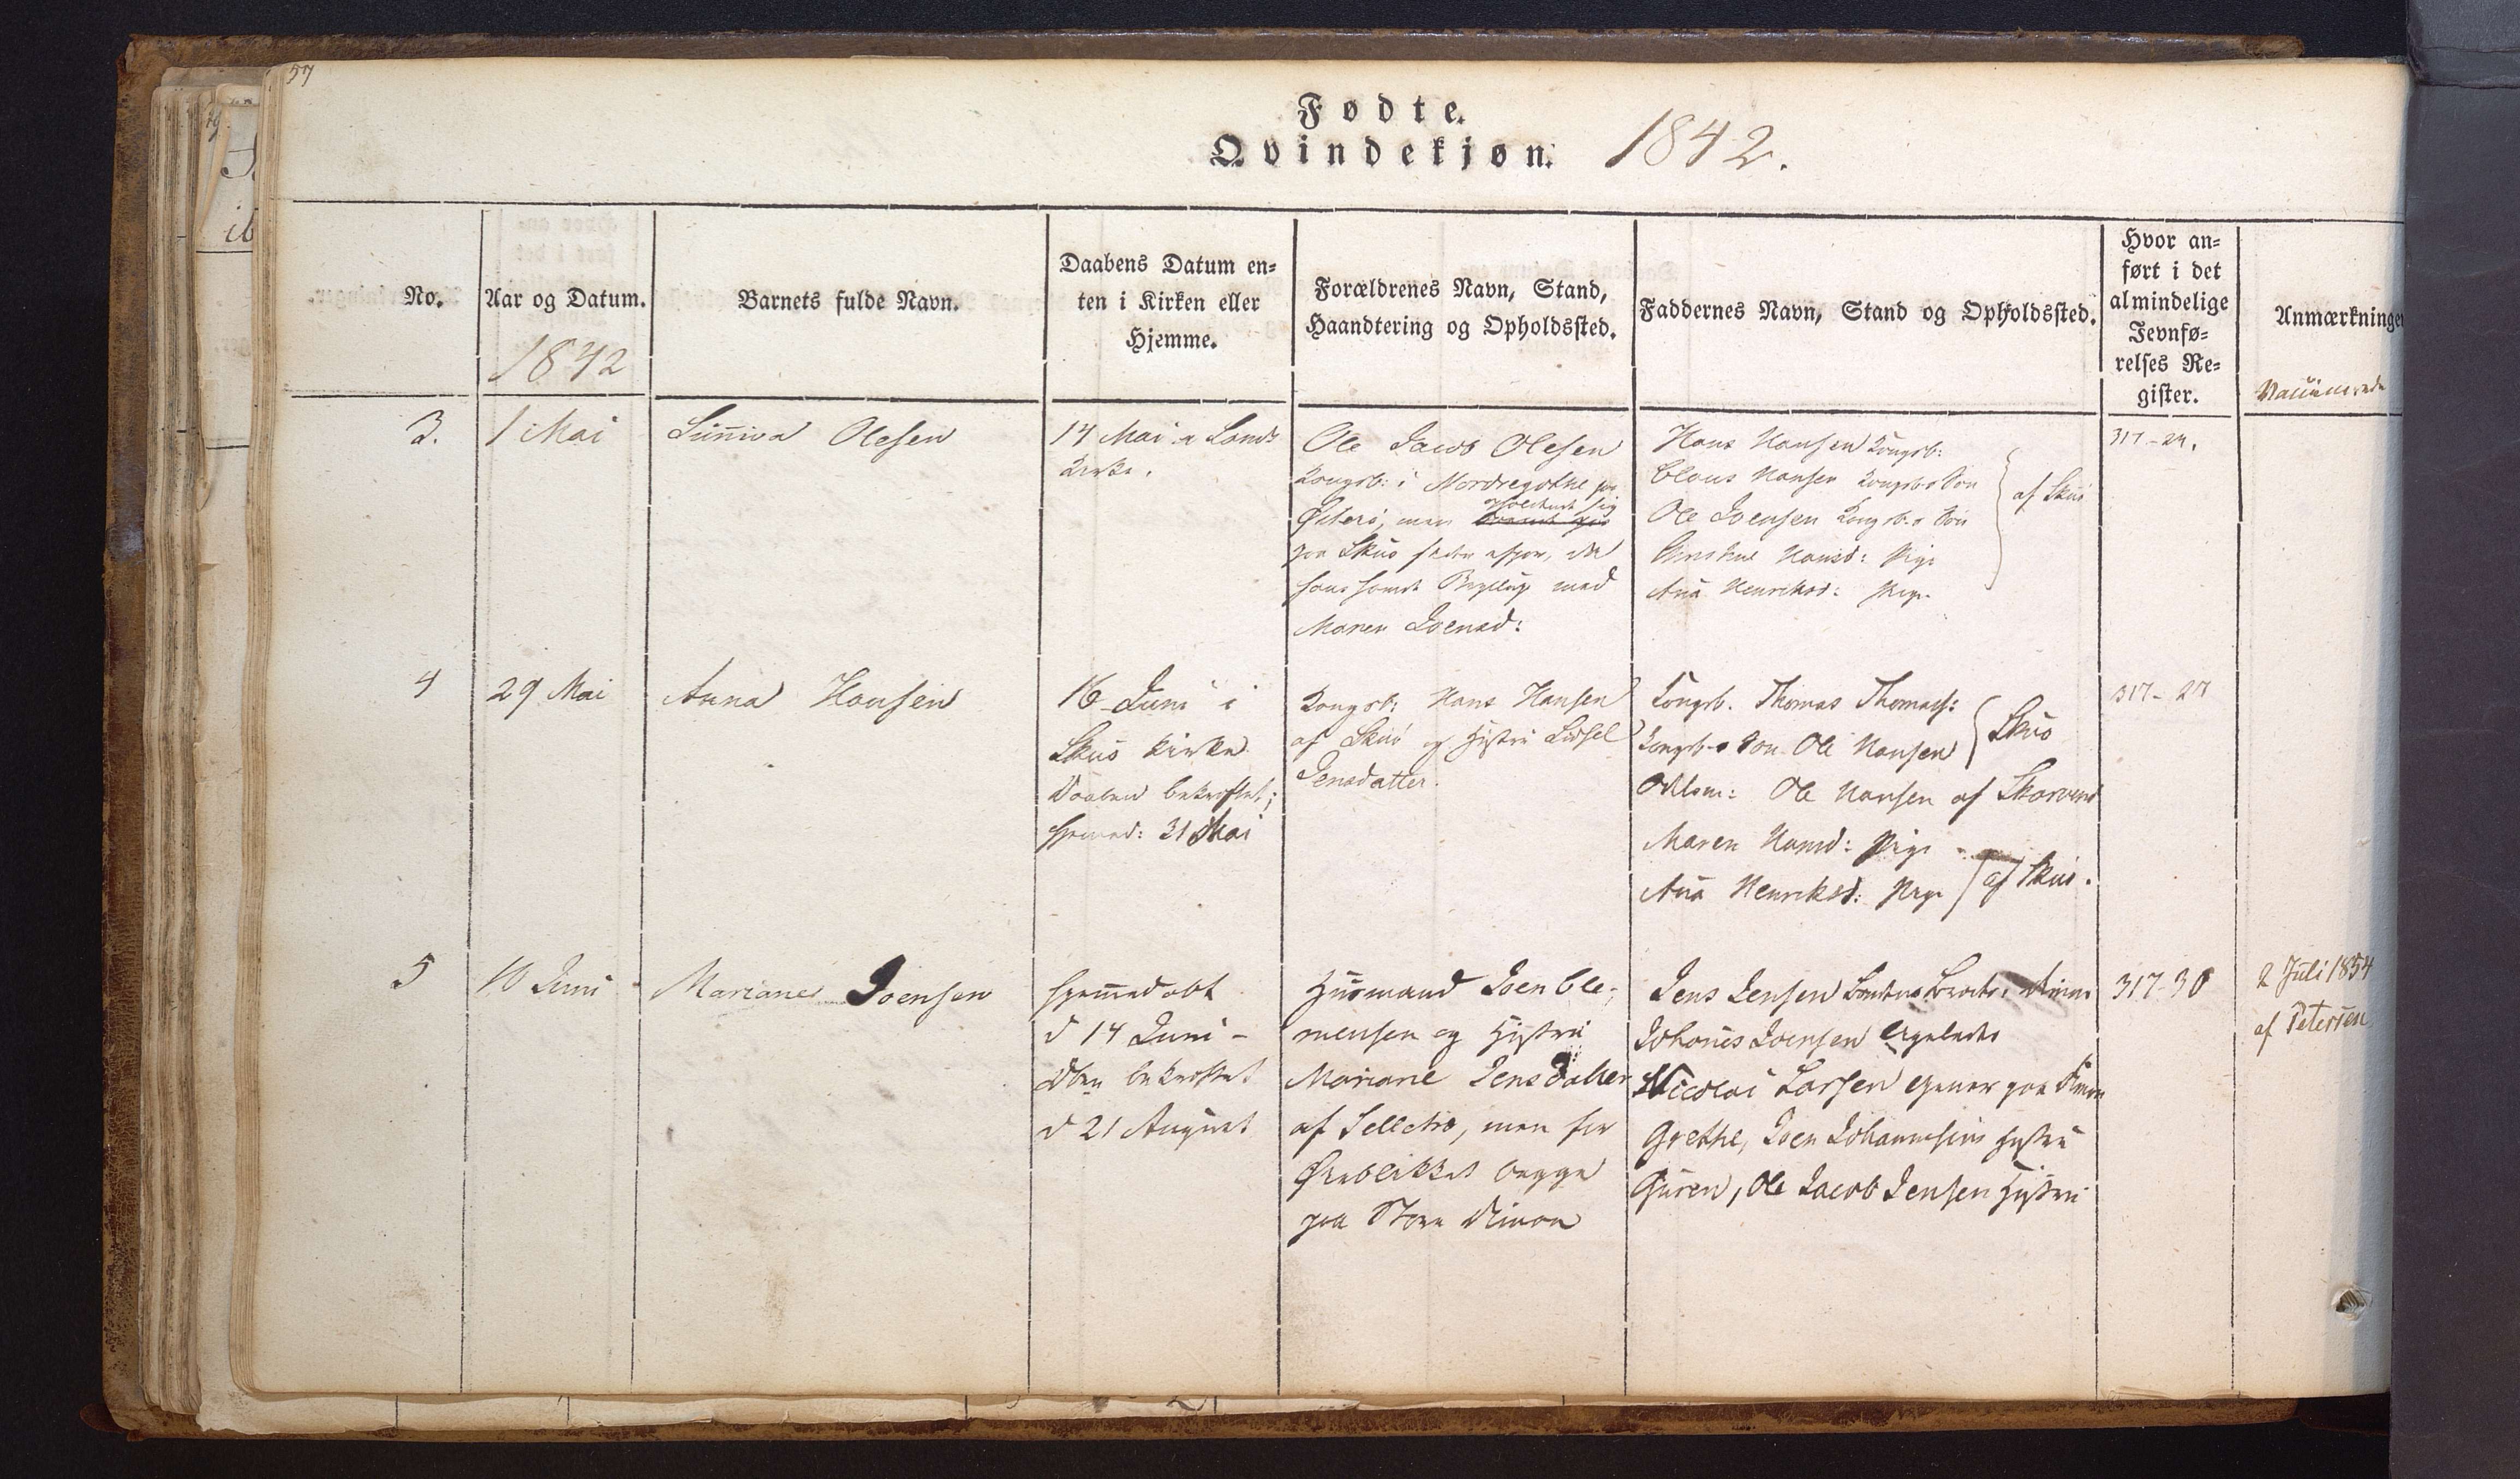 57
Fødte.
Qvindekjøn. 1842.
No.
Aar og Datum.
1842
Barnets fulde Navn.
Daabens Datum en-
ten i Kirken eller
Hjemme.
Forældrenes Navn, Stand,
Haandtering og Opholdssted.
Faddernes Navn, Stand og Opholdssted.
Hvor an-
ført i det
almindelige
Jevnfø-
relses Re-
gister.
Anmærkninger
3.
1 Mai
Suniva Olesen
14 Mai
Kirke.
Ole Jacob Olesen
Kongsb: i Nordregøthe paa
Østerø, men
paa Skuø
Bryllup med
Maren Joensd:
Hans Hansen Kongsb:
Claus Hansen Kongsb-s Søn
Ole Joensen Kongsb-s Søn
Hansd: Pige
Ana Henriksd: Pige
af Skuø
317-24.
4
29 Mai
Anna Hansen
16 Juni i
Skuø Kirke
Daaben bekræftet;
hjemmed: 31 Mai
Kongsb: Hans Hansen
af Skuø og Hustru Sidsel
Jensdatter.
Kongsb. Thomas Thomass:
Kongsb-s Søn Ole Hansen
Skuø
Odelsm: Ole Hansen af
Maren Hansd: Pige
Ana Henriksd: Pige
af Skuø.
317-27
5
10 Juni
Mariane Joensen
Hjemmedøbt
d 14 Juni -
Dben bekræftet
d 21 August
Husmand Joen Cle-
mensen og Hustru
Mariane Jensdatter
af Selletræ, men for
Øieblikket begge
paa Store Dimon
Jens Jensen
Johanes Joensen
Nicolai Larsen
Grethe, Joen Johannesens Hustru
Guren, Ole Jacob Jensen Hustru
317-30
2 Juli 1854
af Petersen